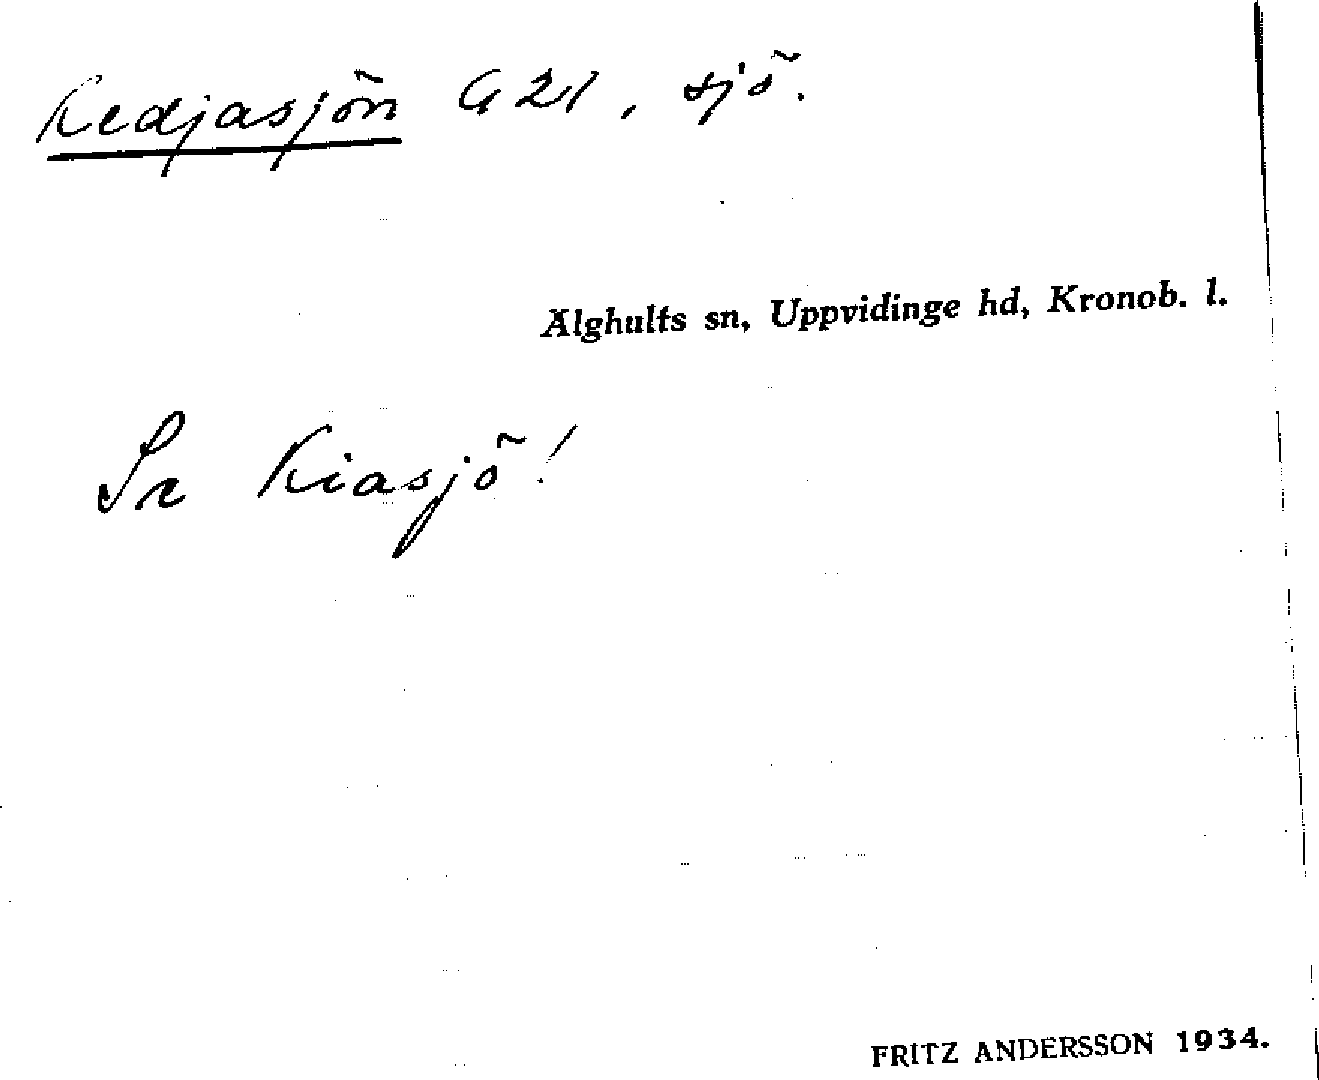 Kedjasjön G 21, sjö.
Älghults sn, Uppvidinge hd, Kronob. l.
Se Kiasjö!
FRITZ ANDERSSON 1934.